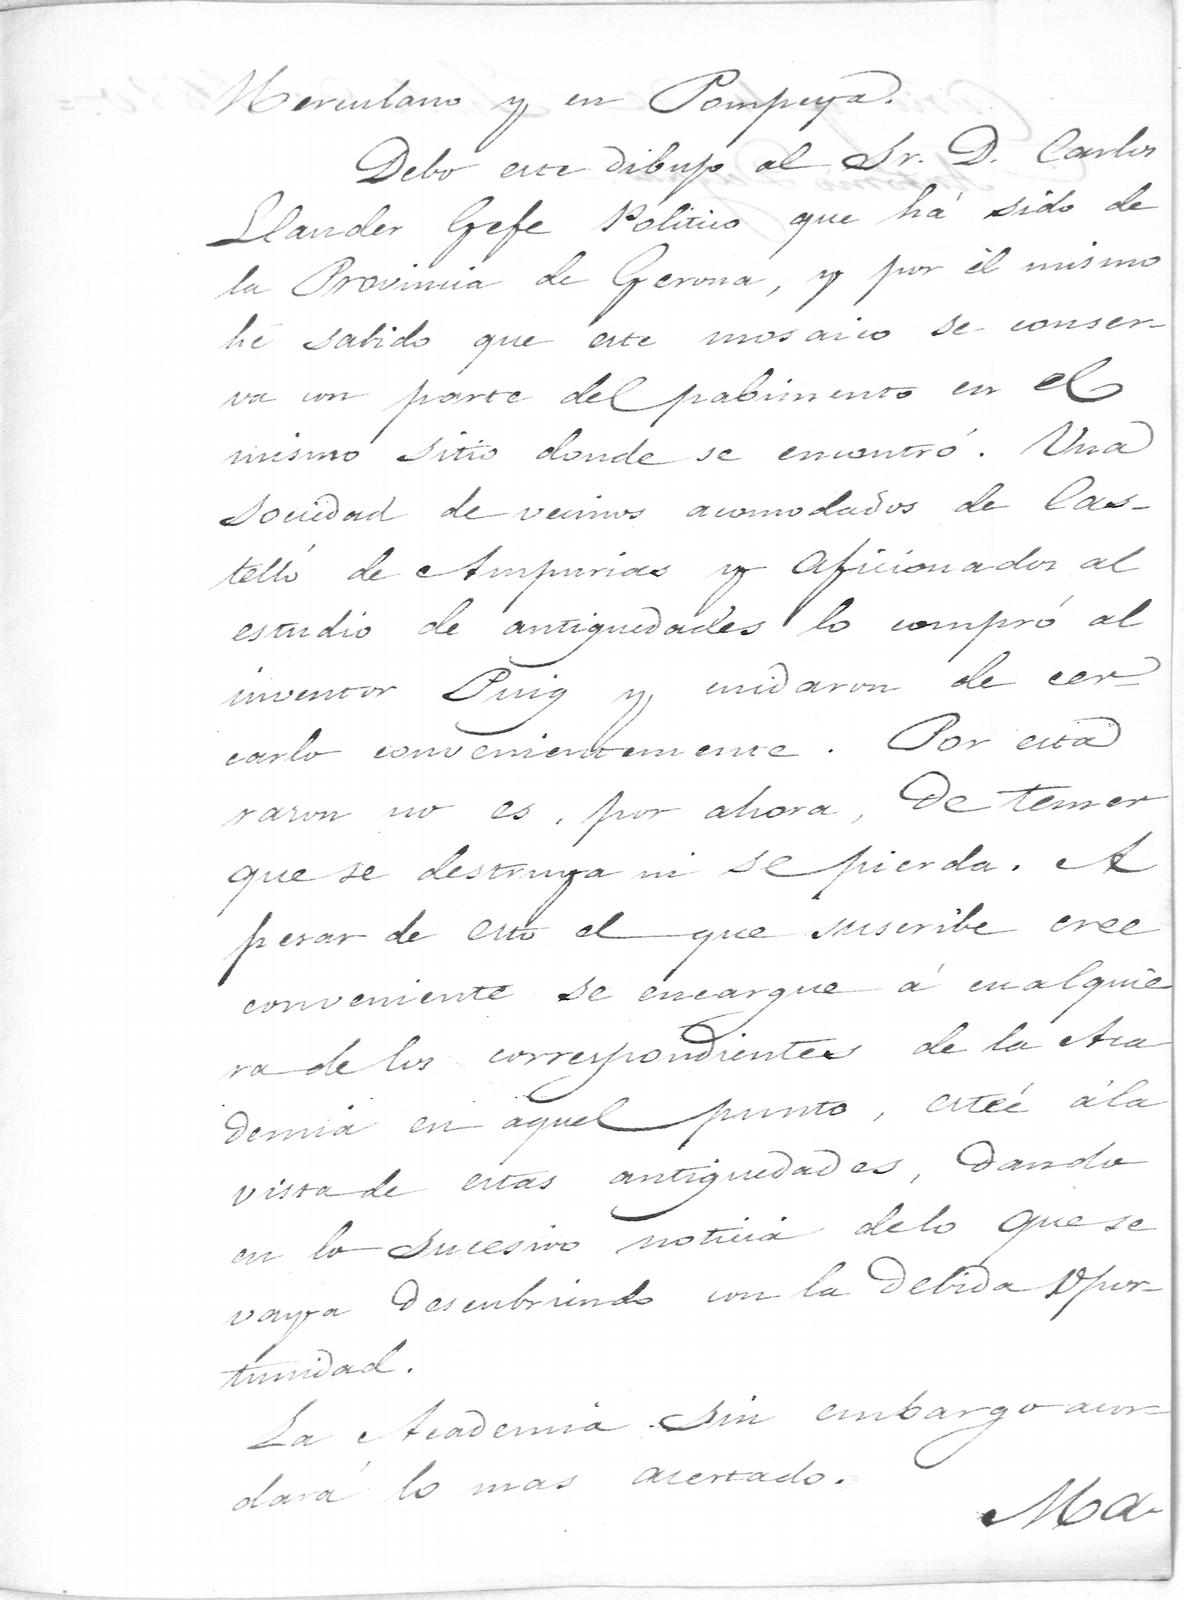 Herculano y en Pompeya.
Debo este dibujo al Sr. D. Carlos
Llander Gefe Politico que há sido de
la Provincia de Gerona, y por él mismo
hé sabido que este mosaico se conser-
va con parte del pabimento en el
mismo sitio donde se encontró. Una
sociedad de vecinos acomodados de Cas-
telló de Ampurias y aficionados al
estudio de antiguedades lo compró al
inventor Puig y cuidaron de cer-
carlo convenientemente. Por esta
razon no es, por ahora, de temer
que se destruya ni se pierda. A
pesar de esto el que suscribe cree
conveniente se encargue á cualquie
ra de los correspondientes de la Aca
demia en aquel punto, esteé á la
vista de estas antiguedades, dando
en lo sucesivo noticia de lo que se
vaya descubriendo con la debida opor-
tunidad.
La Academia sin embargo acor-
dará lo mas acertado.
Ma-